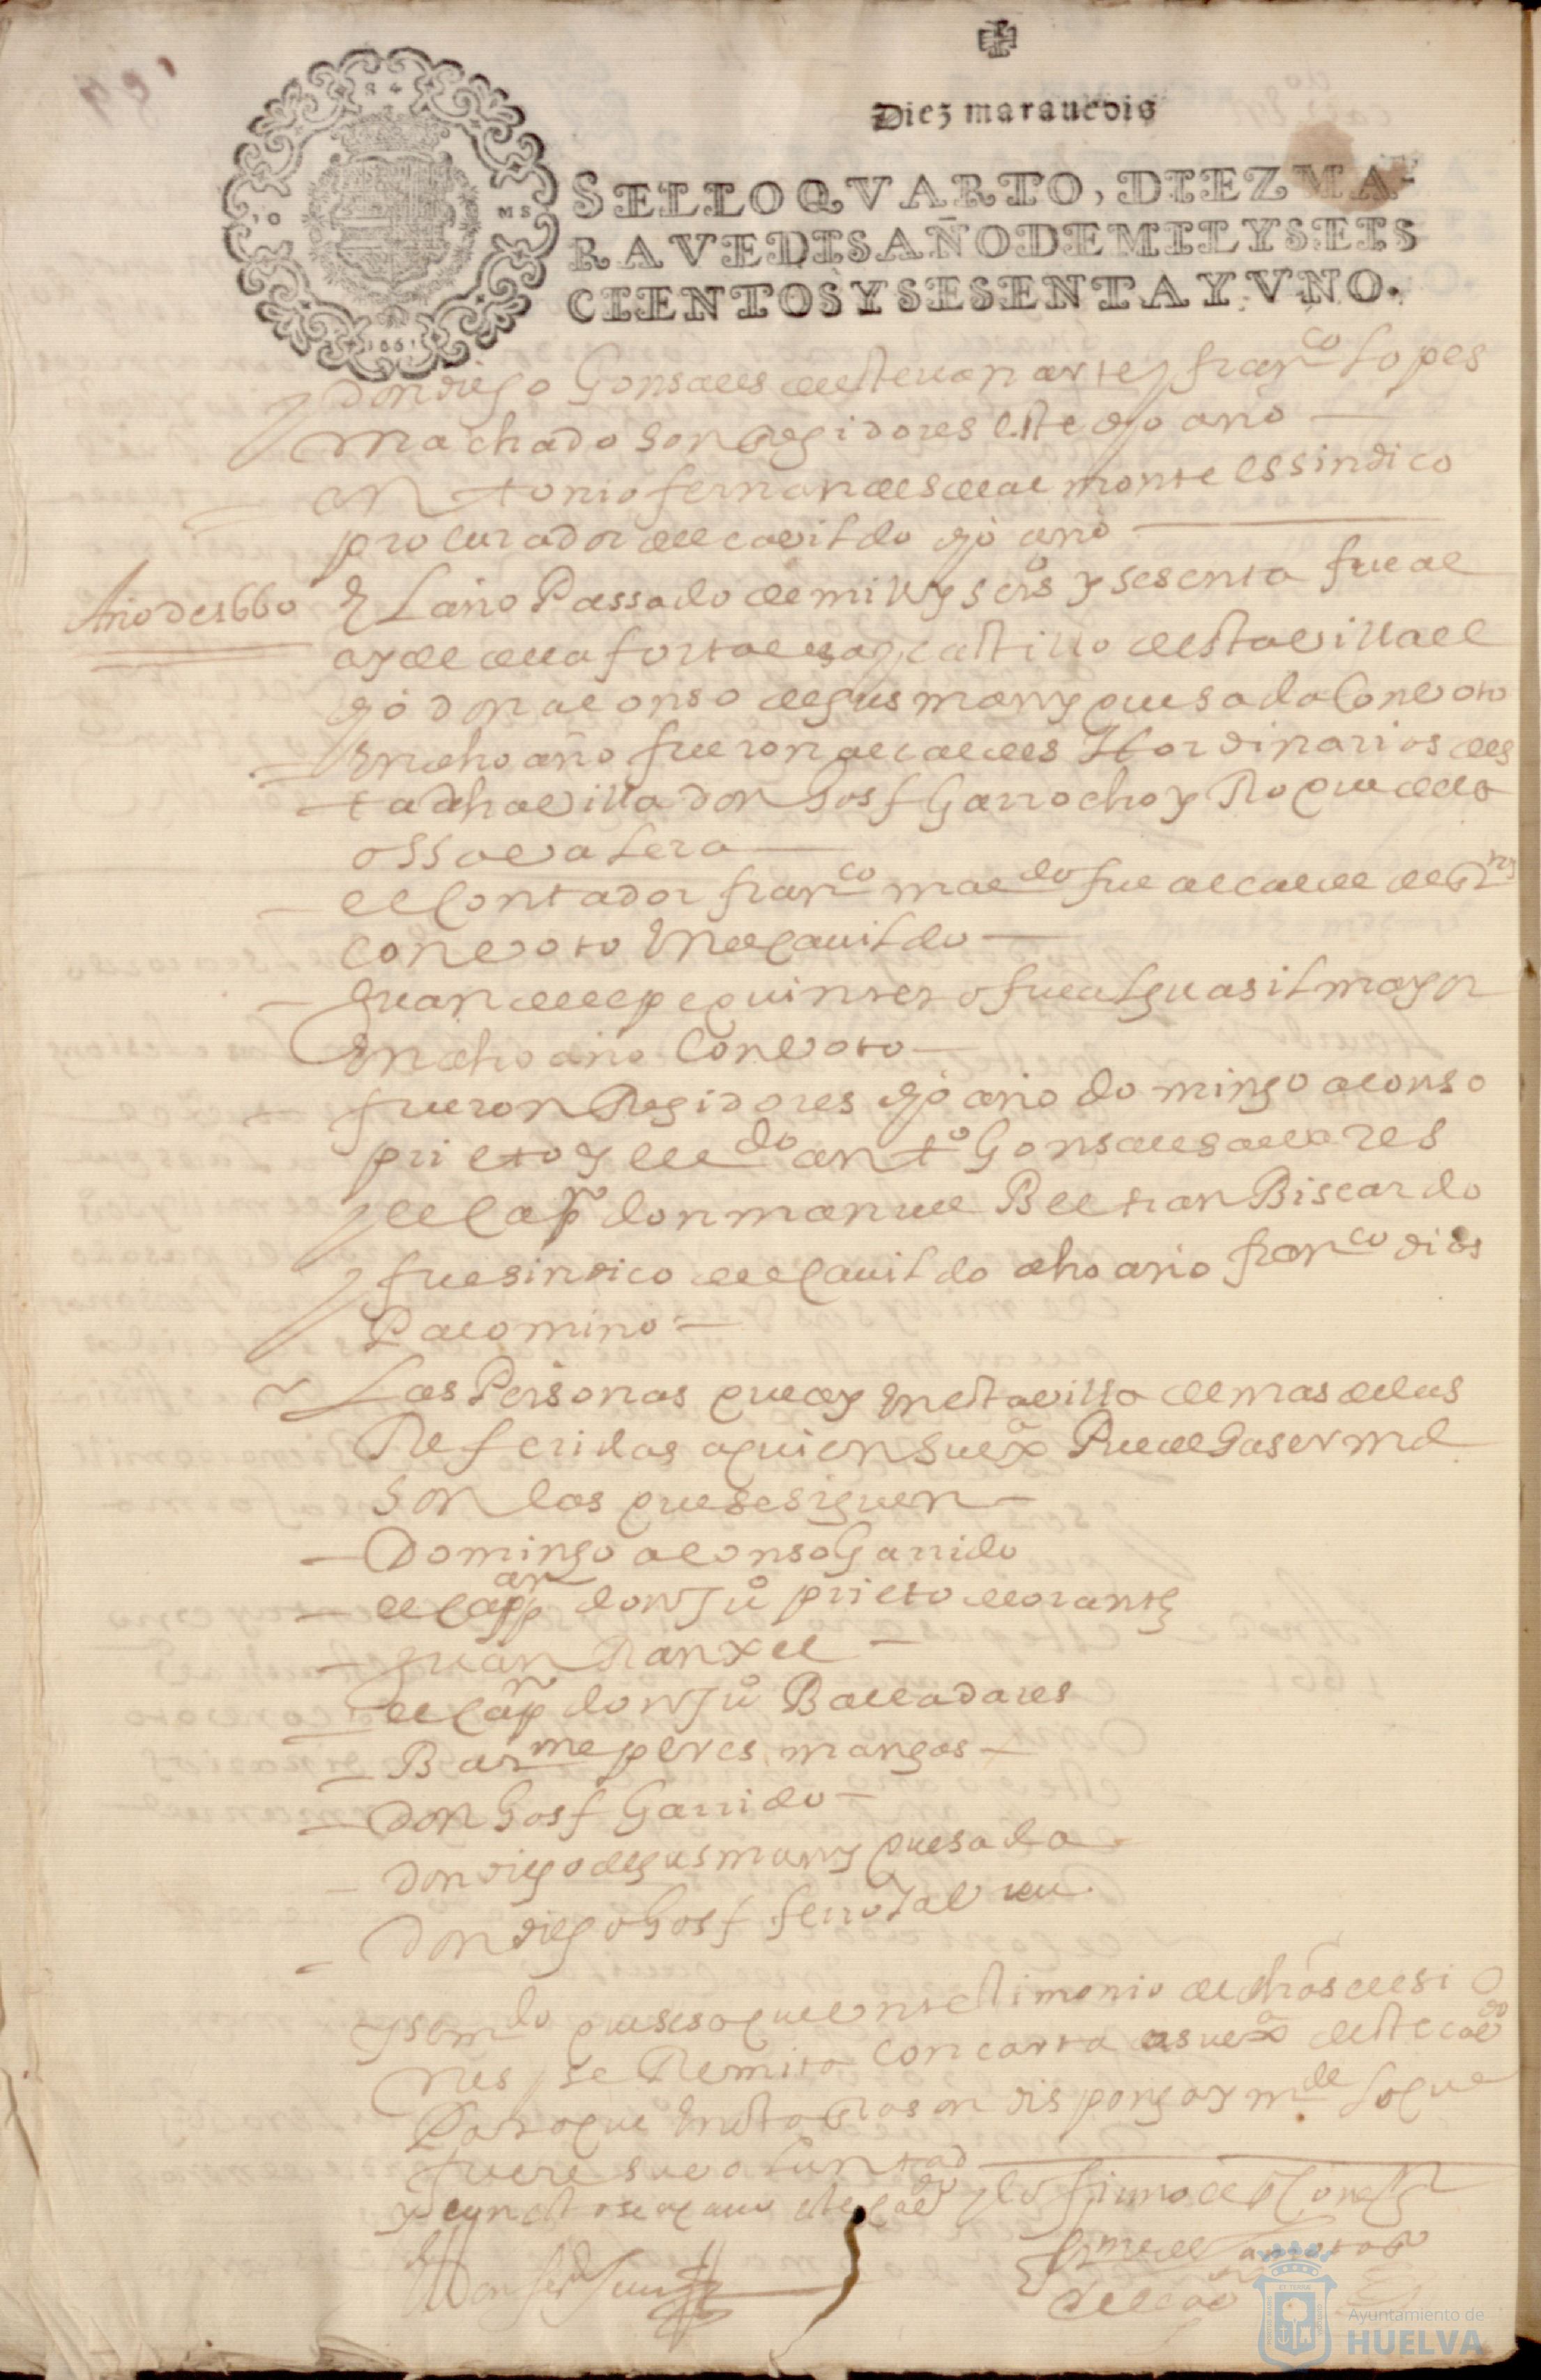 Diez marauedis
SELLO QVARTO, DIEZ MA-
RAVEDIS AÑO DE MIL Y SEIS
CIENTOS Y SESENTA Y VNO.
1661
don diego Gonsales franco Lopes
machado son Regidores este dho año
antonio fernandes del monte es sindico
procurador del cavildo dho año
Año de 1660
El año Passado de mill y seis y sesenta fue al
cayde de la fortalesa y castillo desta villa el
dho don alonso de gusman y quesada Con voto
En dho año fueron alcaldes Hordinarios des
ta dha villa don Josf Garrocho y Roque de la
ossa valera
el Contador franco maldo fue alcalde de
con voto En el cavildo
Juan de la p quintero fue alguasil mayor
En dho año Con voto
fueron Regidores dho año domingo alonso
prieto y el ldo anto Gonsales alvares
y el Capn don manuel Beltran Biscardo
fue sindico del Cavildo dho año franco dias
Palomino
Las Personas que ay En esta villa demas de las
Referidas a quien su exa Puede haser md
son las que se siguen
Domingo alonso Garrido
el Capan don Juo prieto llorante
Juan Ranxel
el Capn don Juo Balladares
Barme peres mangas
don Josf Garrido
don diego de gusman y quesada
don diego Josf
y se mdo que se saque un testimonio de dhas elesio
nes y se Remita con carta a su exa deste cavdo
Para que En esta Rason disponga y mde lo que
fuere su voluntad
y con esto se acavo este cavdo y lo firmo
Ayuntamiento de
HUELVA